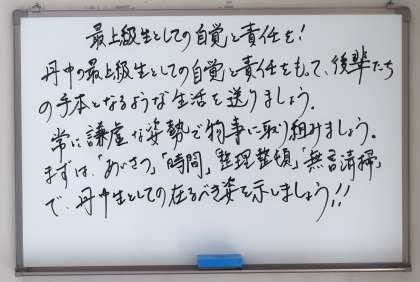 最上級生としての自覚と責任を!
丹中の最上級生としての自覚と責任をもって、後輩たち
の手本となるような生活を送りましょう。
常に謙虚な姿勢で物事に取り組みましょう。
まずは、「あいさつ」「時間」「整理整頓」「無言清掃」
で、丹中生としての在るべき姿を示しましょう!!